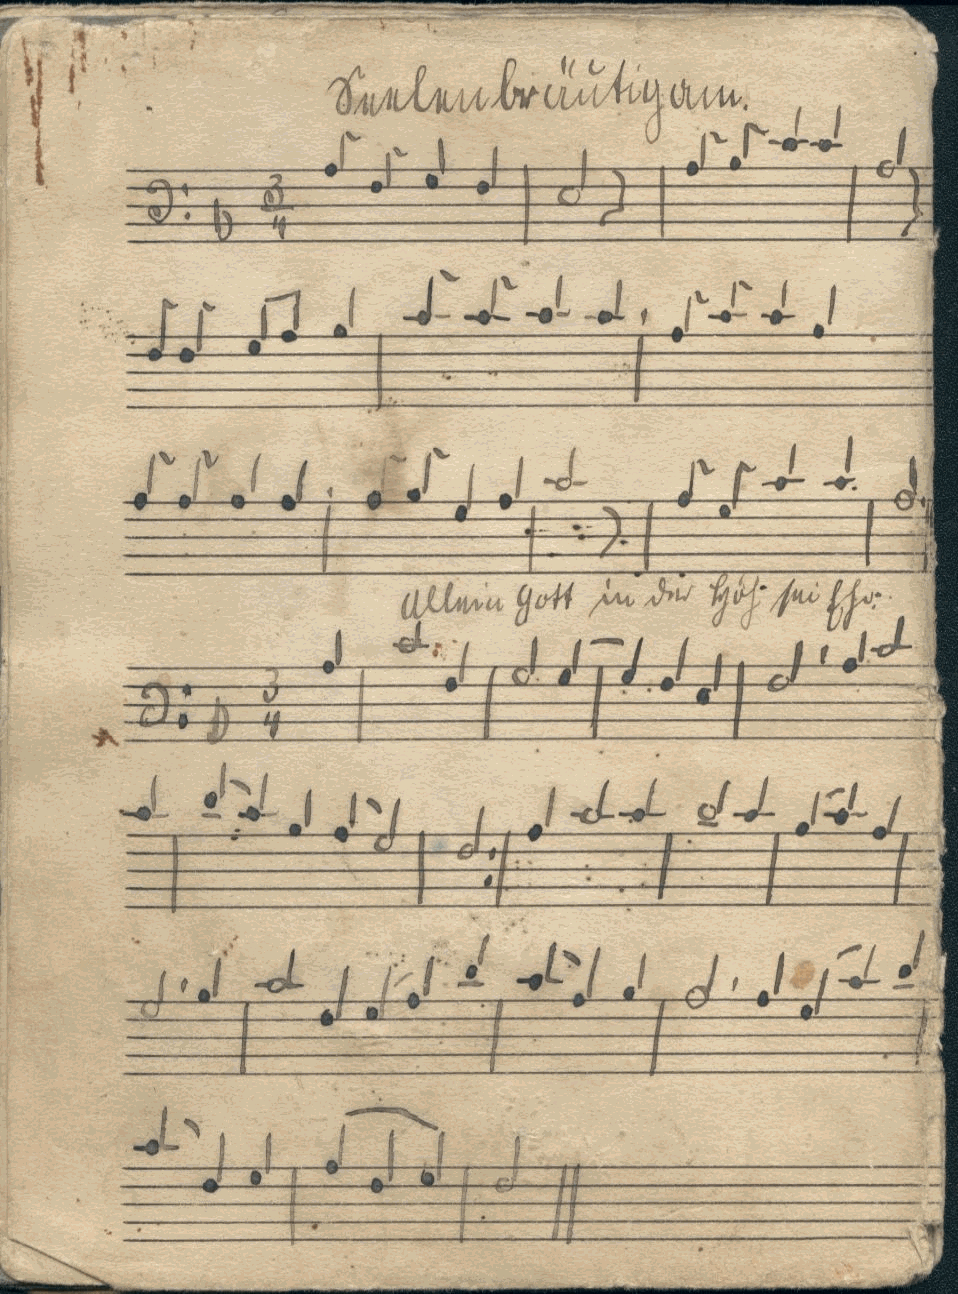 Seelenbräutigam.
3/4
Allein Gott in der Höh sei Ehr.
3/4